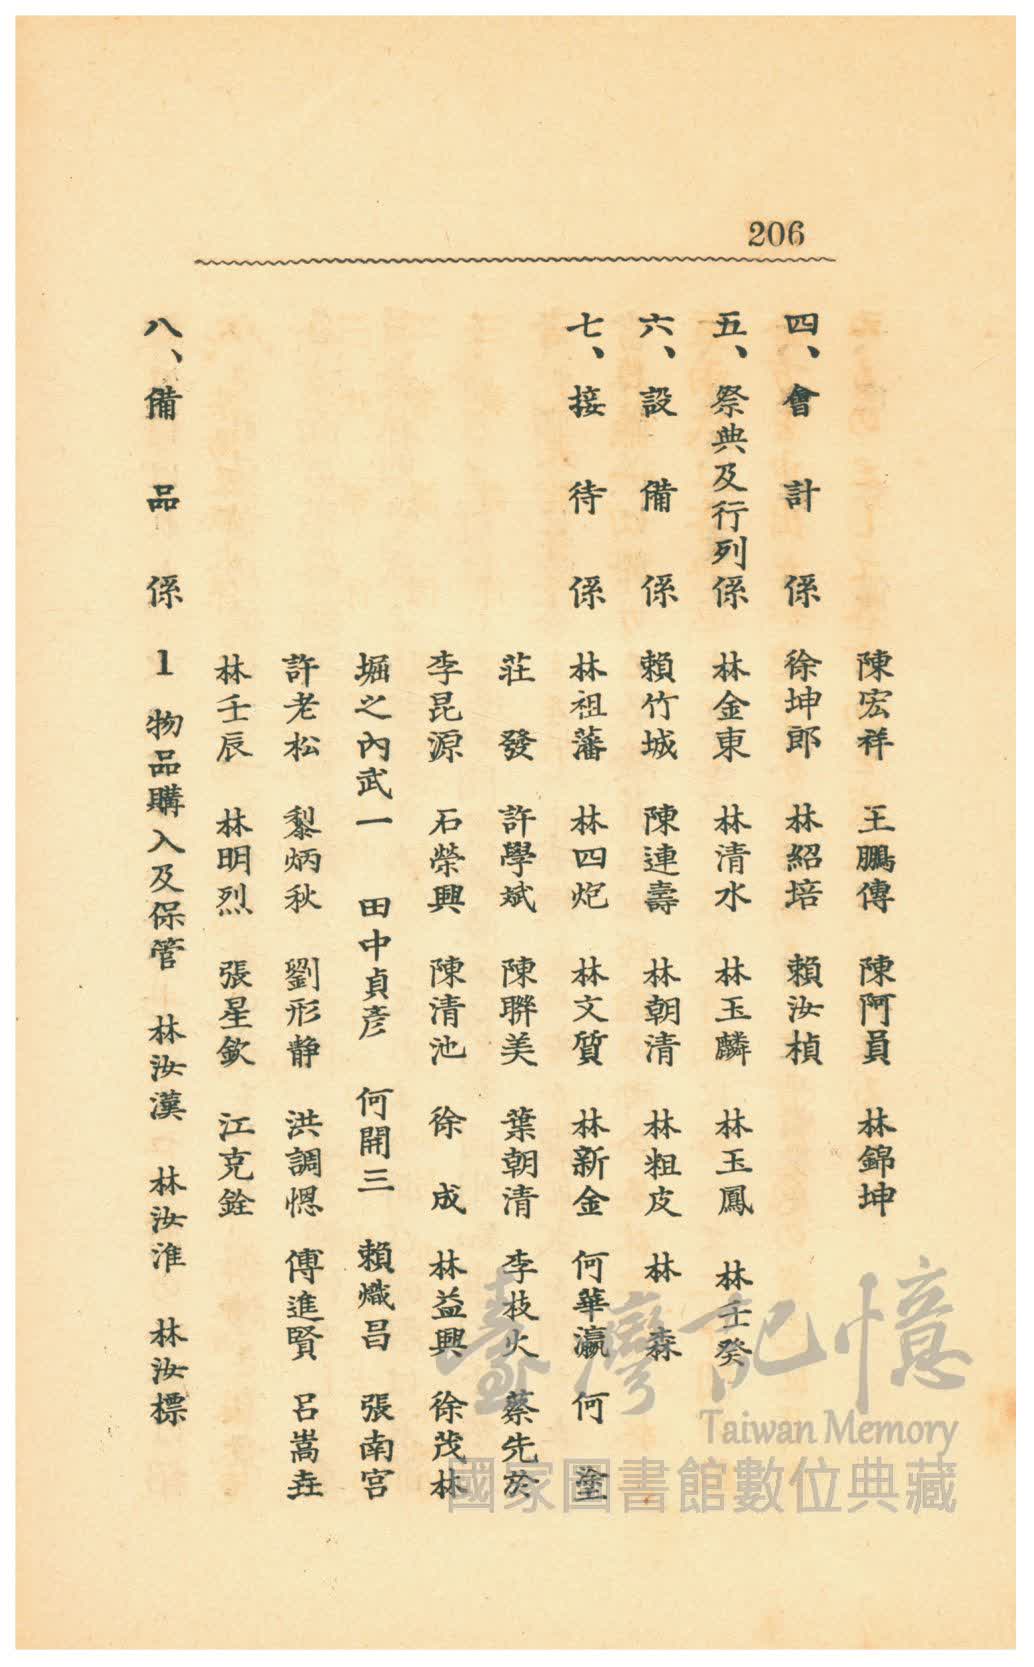 206
陳宏祥 王鵬傳 陳阿員 林錦坤
四、會計係 徐坤郎 林紹培 賴汝楨
五、祭典及行列係 林金東 林清水 林玉麟 林玉鳳 林壬癸
六、設備係 賴竹城 陳連壽 林朝清 林粗皮 林森
七、接待係 林祖藩 林四炮 林文質 林新金 何華瀛 何塗
莊發 許學斌 陳聯美 葉朝清 李枝火 蔡先於
李昆源 石榮興 陳清池 徐成 林益興 徐茂林
堀之內武一 田中貞彥 何開三 賴熾昌 張南宮
許老松 黎炳秋 劉形静 洪調愢 傅進賢 呂嵩垚
林壬辰 林明烈 張星欽 江克銓
八、備品係 1 物品購入及保管 林汝漢 林汝淮 林汝標
臺灣記憶
Taiwan Memory
國家圖書館數位典藏